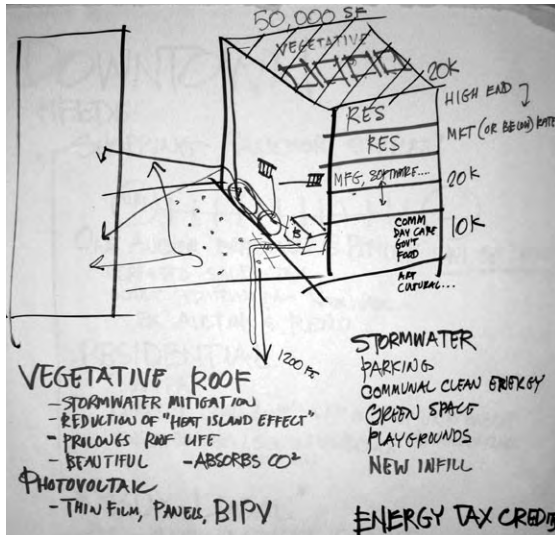 50,000 SF
VEGETATIVE
20K
HIGH END
RES
RES
MKT (OR BELOW) RATE
MFG, SOFTWARE....
20K
10K
COMM
DAY CARE
GOV'T
FOOD
ART
CULTURAL...
1200
VEGETATIVE ROOF
- STORMWATER MITIGATION
- REDUCTION OF "HEAT ISLAND EFFECT"
- PROLONGS ROOF LIFE
- BEAUTIFUL - ABSORBS CO²
PHOTOVOLTAIC
- THIN FILM, PANELS, BIPV
STORMWATER
PARKING
COMMUNAL CLEAN ENERGY
GREEN SPACE
PLAYGROUNDS
NEW INFILL
ENERGY TAX CREDITS